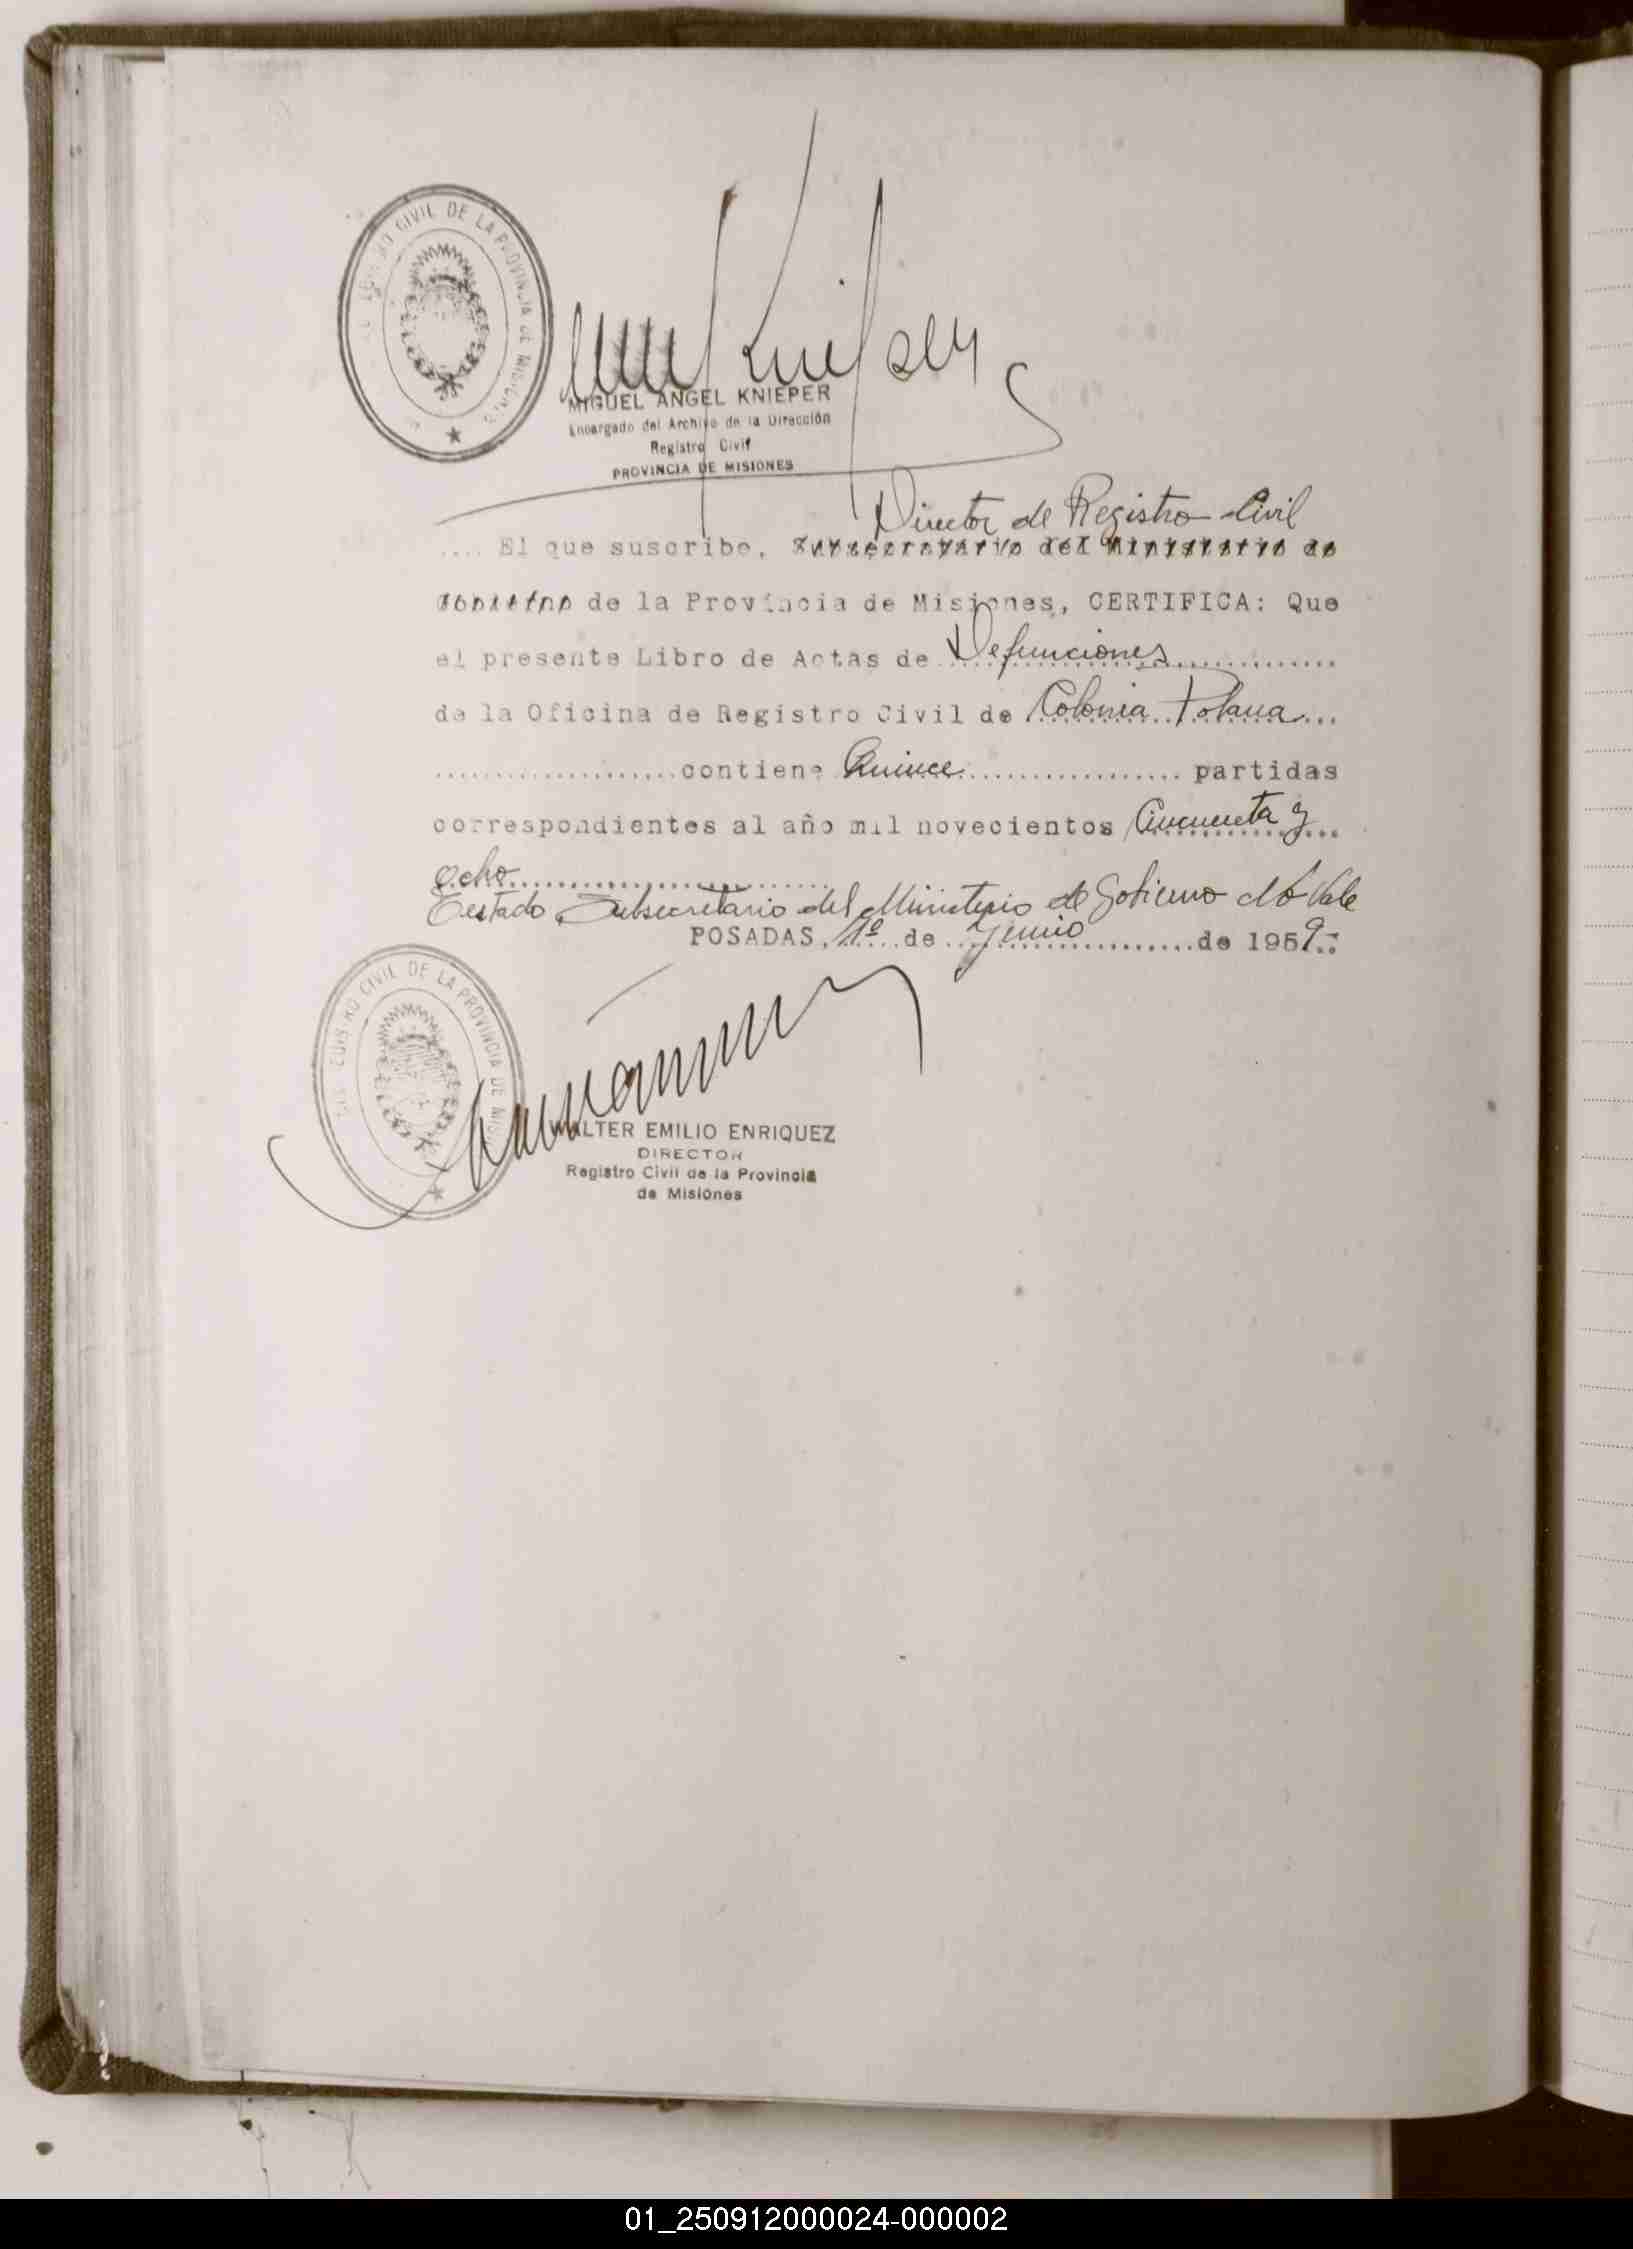 CIVIL DE LA PROVINCIA DE MISIONES
MIGUEL ANGEL KNIEPER
Encargado del Archivo de la Dirección
Registro Civil
PROVINCIA DE MISIONES
Director de Registro Civil
.... El que suscribe, Subsecretario del Ministerio de
Gobierno de la Provincia de Misiones, CERTIFICA: Que
el presente Libro de Actas de Defunciones
de la Oficina de Registro Civil de Colonia Polana
contiene Quince partidas
correspondientes al año mil novecientos Cincuenta y
ocho
Testado Subsecretario del Ministerio de Gobierno No Vale
POSADAS, 1º de Junio de 1959.-
CIVIL DE LA PROVINCIA DE
WALTER EMILIO ENRIQUEZ
DIRECTOR
Registro Civil de la Provincia
de Misiones
01_250912000024-000002